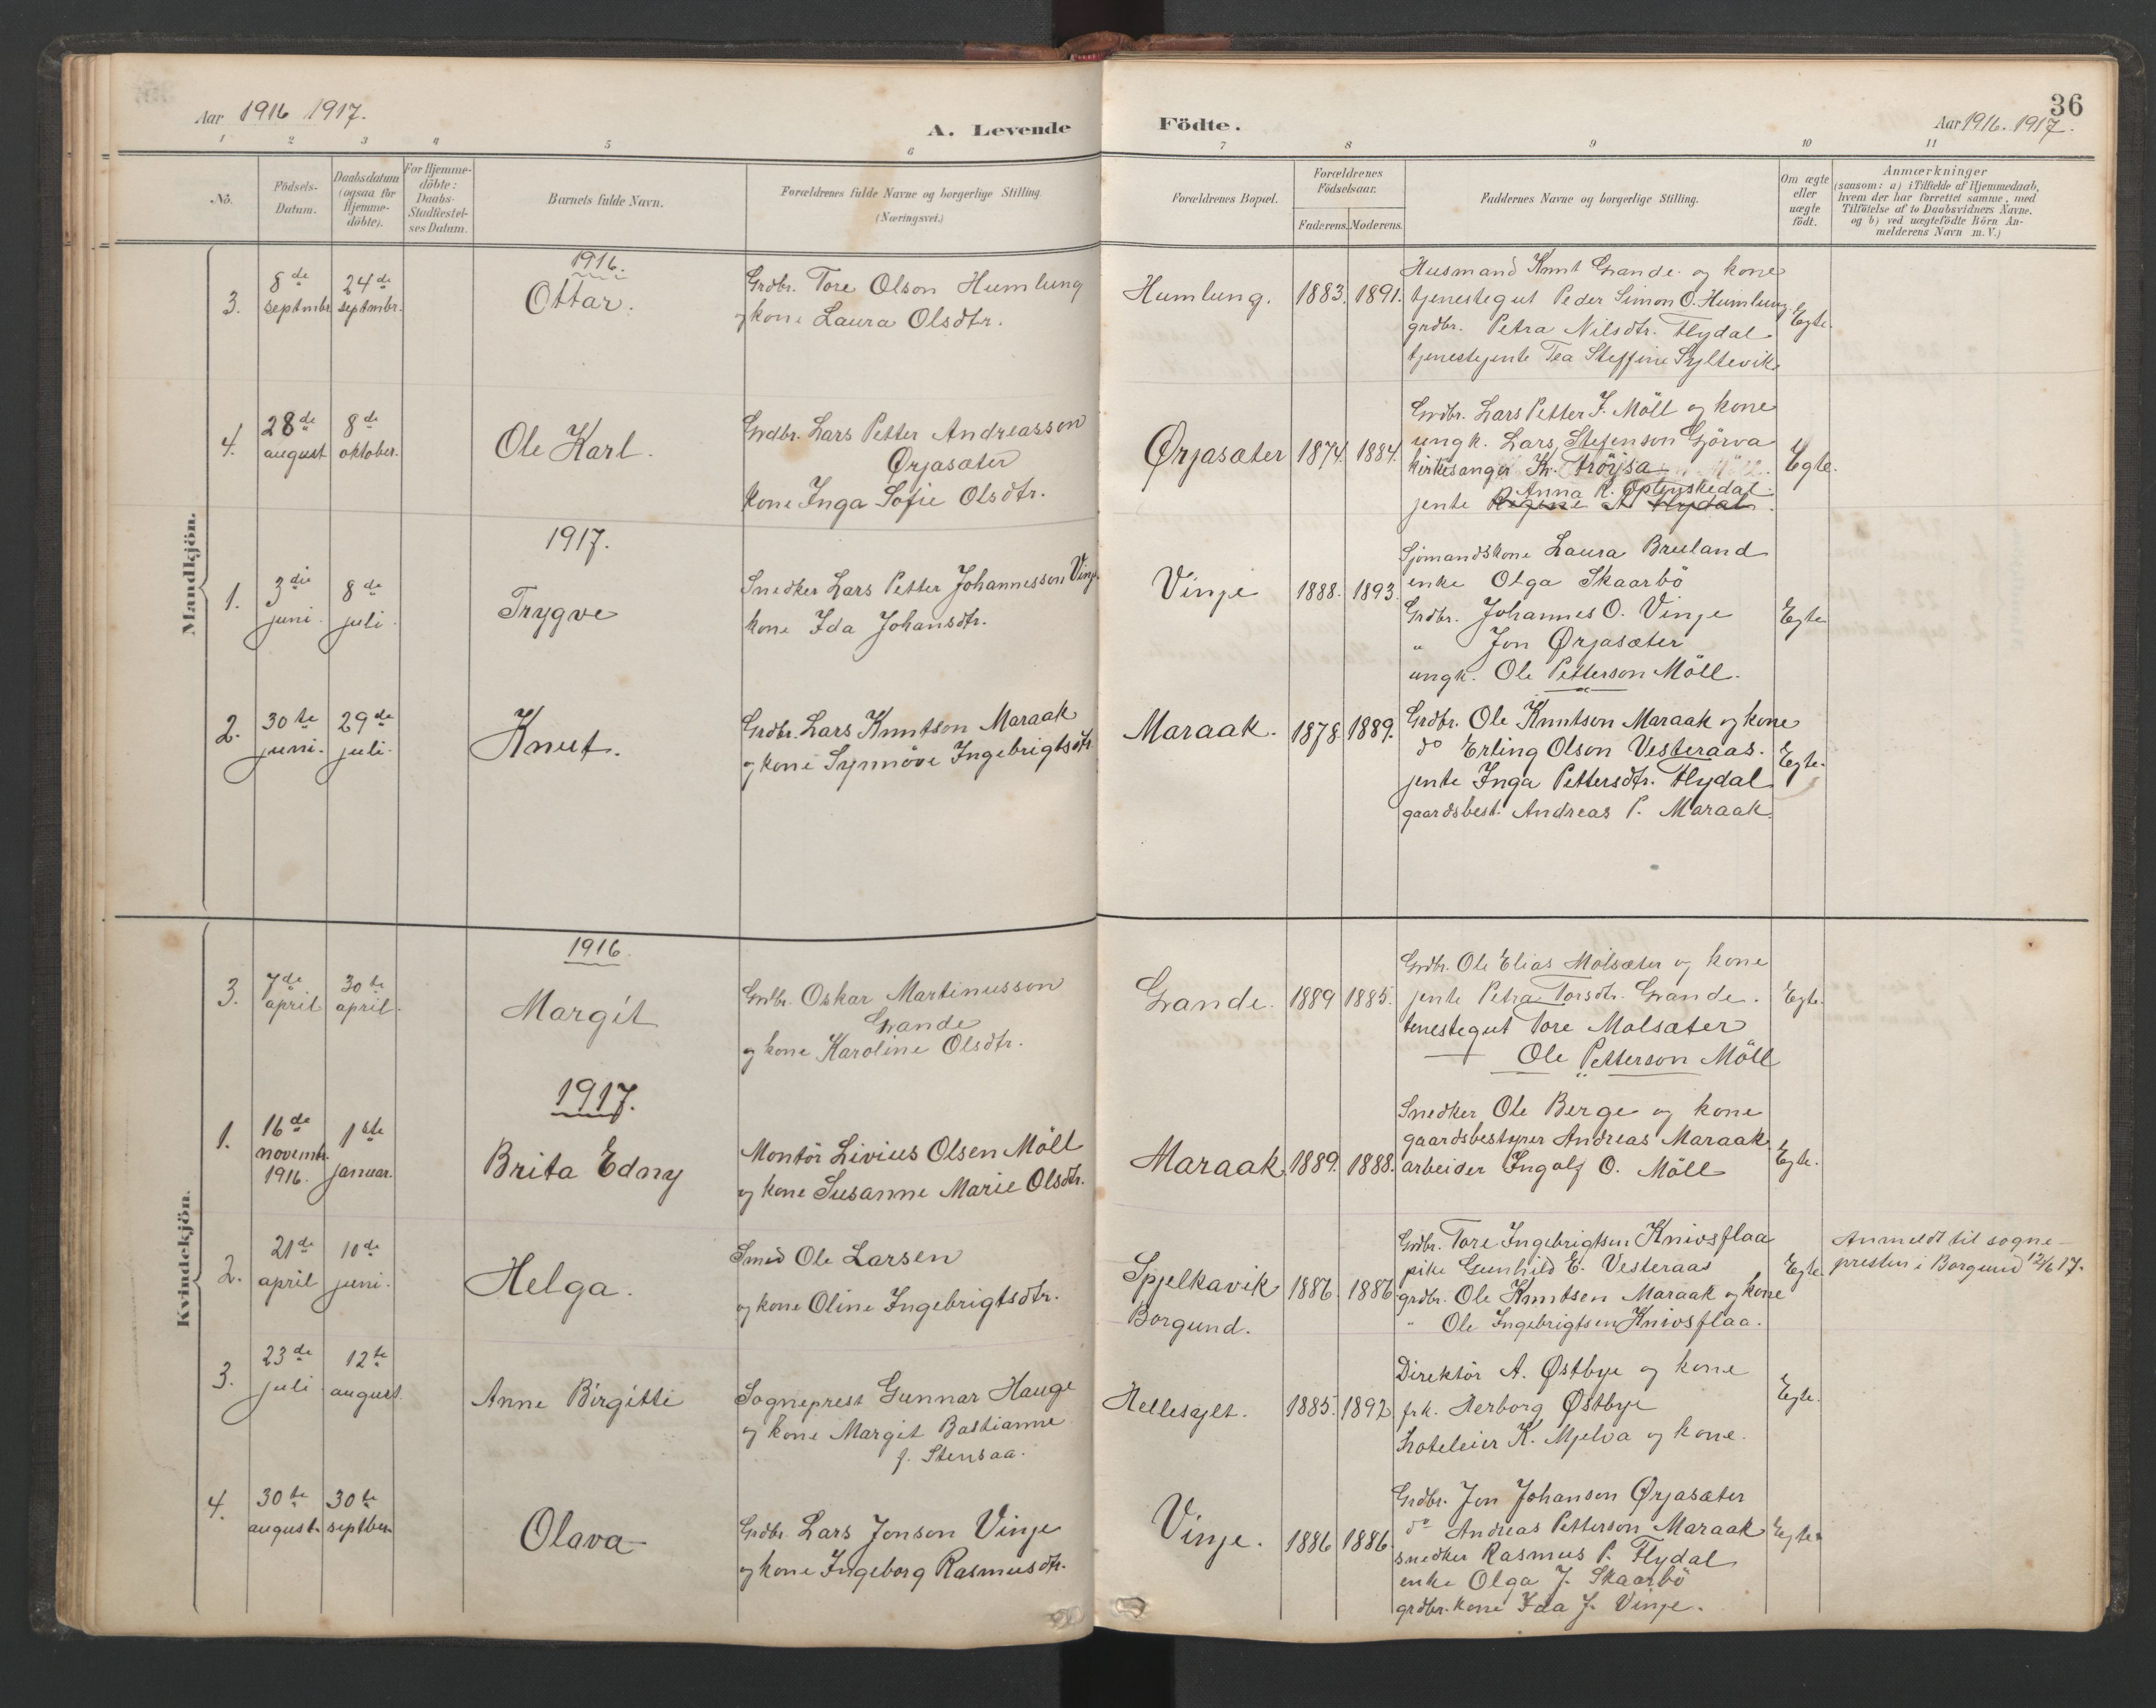 Aar 1916 1917.
A. Levende
Födte.
36
Aar 1916. 1917.
1 2 3 4 5 6 7 8 9 10 11
Nö.
Födsels-
Datum.
Daabsdatum
(ogsaa for
Hjemme-
döbte).
For Hjemme-
döbte:
Daabs-
Stadfæstel-
ses Datum.
Barnets fulde Navn.
Forældrenes fulde Navne og borgerlige Stilling.
(Næringsvei.)
Forældrenes Bopæl.
Forældrenes
Födselsaar.
Faderens. Moderens.
Faddernes Navne og borgerlige Stilling.
Om ægte
eller
uægte
födt.
Anmærkninger
(saasom: a) i Tilfælde af Hjemmedaab,
hvem der har forrettet samme, med
Tilföielse af to Daabsvidners Navne,
og b) ved uægtefödte Börn An-
melderens Navn m. V.)
Mandkjön.
1916.
3.
8de
septmbr.
24de
septmbr.
Ottar.
Grdbr. Tore Olson Humlung
og kone Laura Olsdtr.
Humlung.
1883. 1891.
Husmand Knut Grande og kone
tjenestegut Peder Simon O. Humlung
grdbr. Petra Nilsdtr. Flydal
tjenestejente Tea Steffine Syltevik.
Egte.
4.
28de
august
8de
oktober.
Ole Karl.
Grdbr. Lars Petter Andreasson
Ørjasæter
kone Inga Sofie Olsdtr.
Ørjasæter
1874. 1884.
Grdbr. Lars Petter J. Möll og kone
ungk. Lars Stefenson Gjörva
kirkesanger Kr. Fröysa
Anna K. Optenskedal.
jente Regine A. Flydal.
Egte.
1917.
1.
3die
juni.
8de
juli.
Trygve
Snedker Lars Petter Johannesson Vinje
kone Ida Johansdtr.
Vinje
1888. 1893.
Sjömandskone Laura Bruland
enke Olga Skaarbö
Grdbr. Johannes O. Vinje
" Jon Ørjasæter
ungk. Ole Petterson Möll.
Egte
2.
30te
juni.
29de
juli.
Knut.
Grdbr. Lars Knutson Maraak
og kone Synnöve Ingebrigtsdtr.
Maraak.
1878. 1889.
Grdbr. Ole Knutson Maraak og kone
do Erling Olson Vesteraas.
jente Inga Pettersdtr. Flydal
gaardsbest. Andreas P. Maraak.
Egte.
Kvindekjön.
1916.
3.
7de
april
30te
april.
Margit
Grdbr. Oskar Martinusson
Grande
og kone Karoline Olsdtr.
Grande.
1889 1885.
Grdbr. Ole Elias Molsæter og kone
jente Petra Torsdtr. Grande.
tenestegut Tore Molsæter
Ole Petterson Möll
Egte.
1917.
1.
16de
novembr.
1916.
1ste
januar.
Brita Edny
Montör Livius Olsen Möll
og kone Susanne Marie Olsdtr.
Maraak
1889. 1888.
Snedker Ole Berge og kone
gaardsbestyrer Andreas Maraak
arbeider Ingolf O. Möll
Egte.
2.
21de
april
10de
juni.
Helga.
Smed Ole Larsen
og kone Oline Ingebrigtsdtr.
Spjelkavik
Borgund.
1886. 1886
Grdbr. Tore Ingebrigtsen Knivsflaa
pike Gunhild E. Vesteraas
grdbr. Ole Knutsen Maraak og kone
" Ole Ingebrigtsen Knivsflaa.
Egte
Anmeldt til sogne-
presten i Borgund 12/6 17.
3.
23de
juli
12te
august.
Anne Birgitte
Sogneprest Gunnar Hauge
og kone Margit Bastianne
f. Stensaa.
Hellesylt.
1885. 1892
Direktör A. Østbye og kone
frk. Herborg Østbye
hoteleier K. Mjelva og kone.
Egte.
4.
30te
august.
30te
septber.
Olava
Grdbr. Lars Jonson Vinje
og kone Ingeborg Rasmusdtr.
Vinje.
1886 1886.
Grdbr. Jon Johanson Ørjasæter
do Andreas Petterson Maraak
snedker Rasmus P. Flydal
enke Olga J. Skaarbö
grdbr. kone Ida J. Vinje.
Egte.